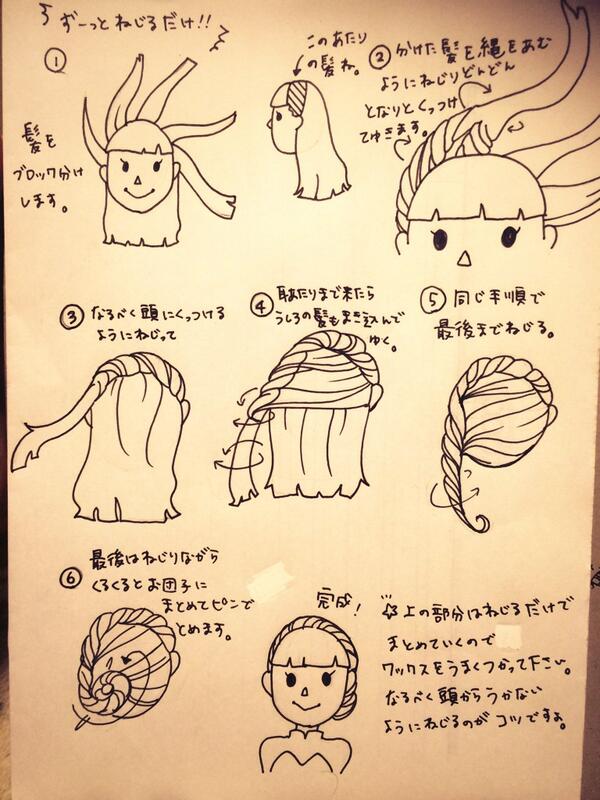 ずーっとねじるだけ!!
①
髪を
ブロック分け
します。
このあたり
の髪ね。
② 分けた髪を縄をあむ
ようにねじりどんどん
となりとくっつけ
てゆきます。
③ なるべく頭にくっつける
ようにねじって
④ 耳あたりまで来たら
うしろの髪もまきこんで
ゆく。
⑤ 同じ手順で
最後までねじる。
⑥ 最後はねじりながら
くるくるとお団子に
まとめてピンで
とめます。
完成!
☆上の部分はねじるだけで
まとめていくので
ワックスをうまくつかって下さい。
なるべく頭からうかない
ようにねじるのがコツですよ。